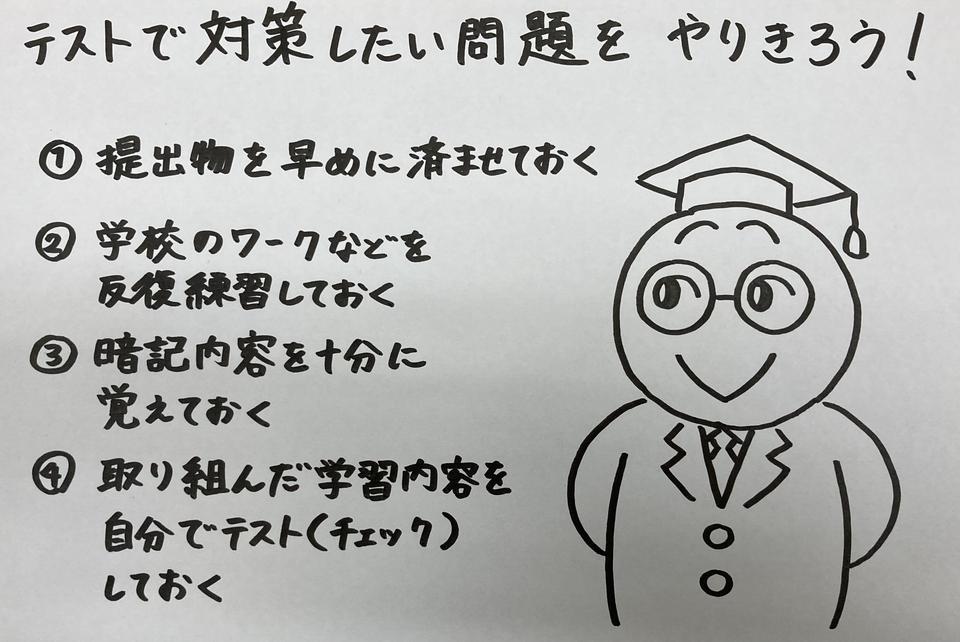 テストで対策したい問題を やりきろう!
① 提出物を早めに済ませておく
② 学校のワークなどを
反復練習しておく
③ 暗記内容を十分に
覚えておく
④ 取り組んだ学習内容を
自分でテスト(チェック)
しておく